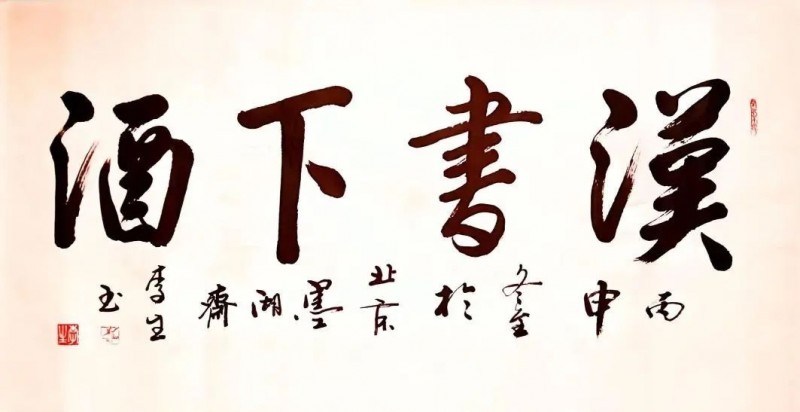 漢書下酒
丙申冬至於北京墨湖齋李生